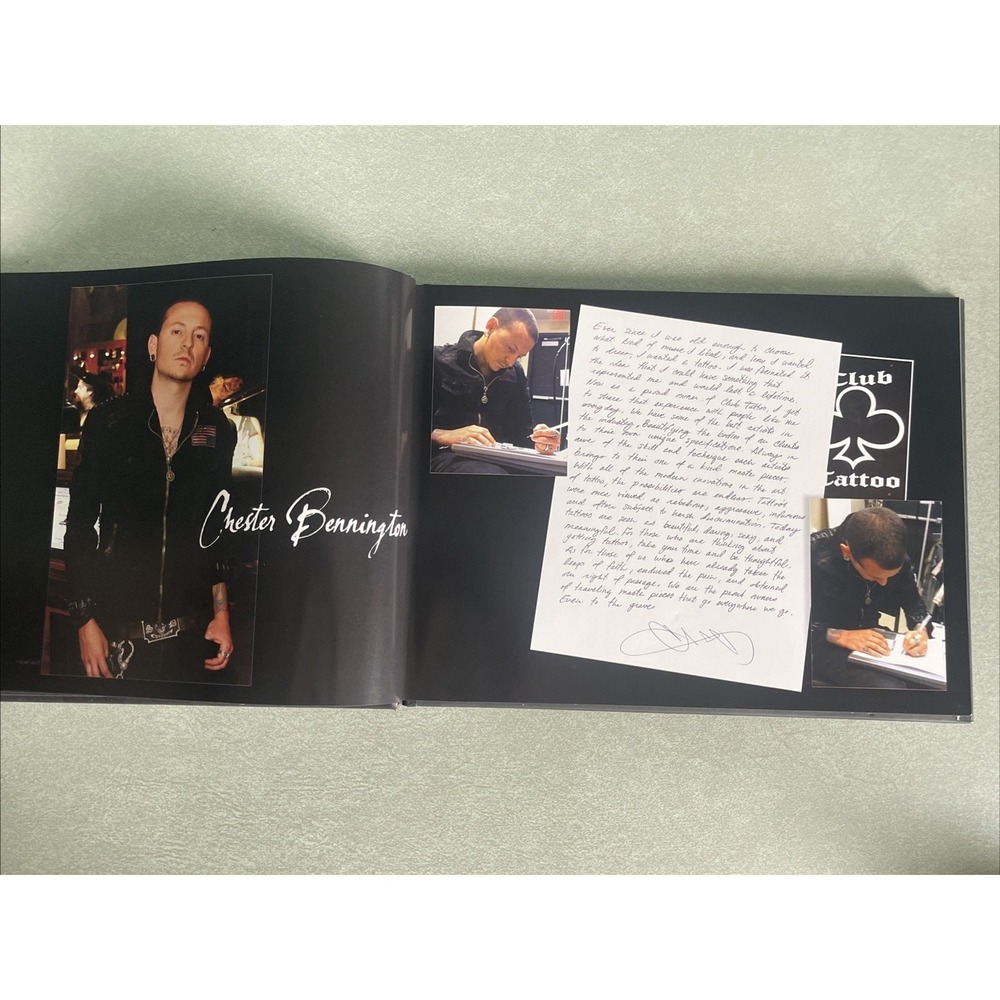 Chester Bennington
Ever since I was old enough to choose
what kind of music I liked, and how I wanted
to dress, I wanted a tattoo. I was facinated at
the idea that I could have something that
represented me and would last a lifetime.
Now as a proud owner of Club Tattoo, I get
to share that experience with people like me
everyday. We have some of the best artists in
the industry, Beautifying the bodies of our clients
to their own unique specifications. Always in
awe of the skill and technique each artist
brings to their one of a kind master pieces.
With all of the modern inovations in the art
of tattoo, the possibilities are endless. Tattoos
were once viewed as rebelious, aggressive, infamous
and often subject to harsh discrimination. Today
tattoos are seen as beautiful, daring, sexy, and
meaningful. For those who are thinking about
getting tattoos, take your time and be thoughtful.
As for those of us who have already taken the
leap of faith, endured the pain, and obtained
our right of passage. We are the proud owners
of traveling master pieces that go everywhere we go.
Even to the grave
Club
Tattoo